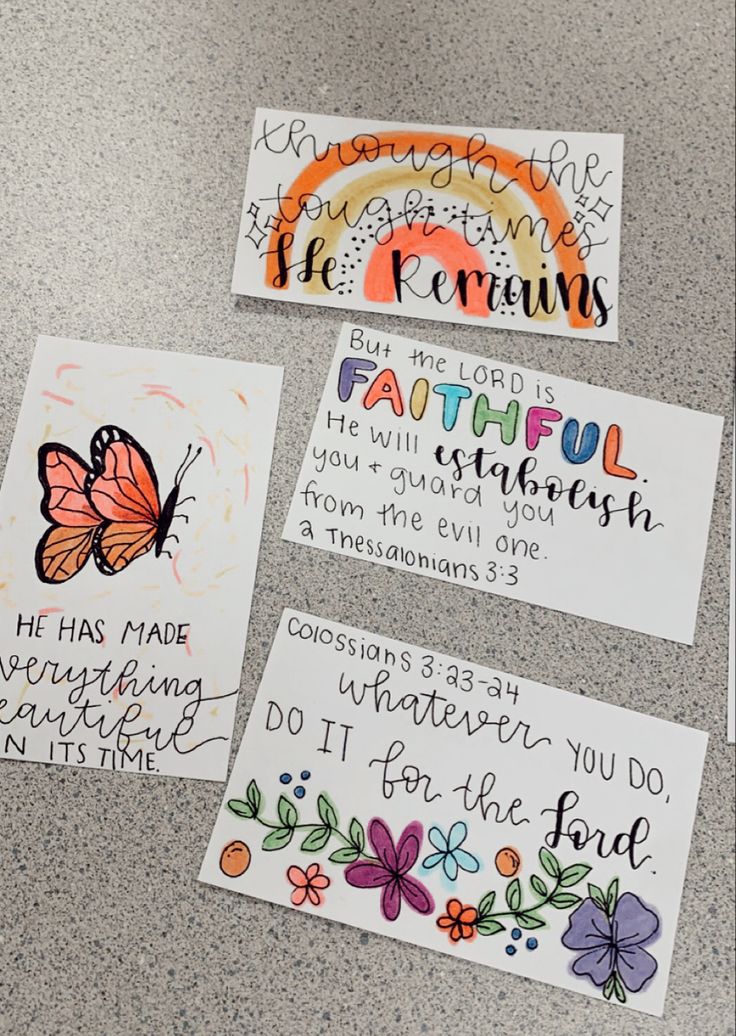 through the
tough times
He Remains
But the LORD is
FAITHFUL.
He will estabolish
you + guard you
from the evil one.
2 Thessalonians 3:3
HE HAS MADE
verything
eautiful
N ITS TIME.
Colossians 3:23-24
whatever YOU DO,
DO IT for the Lord.